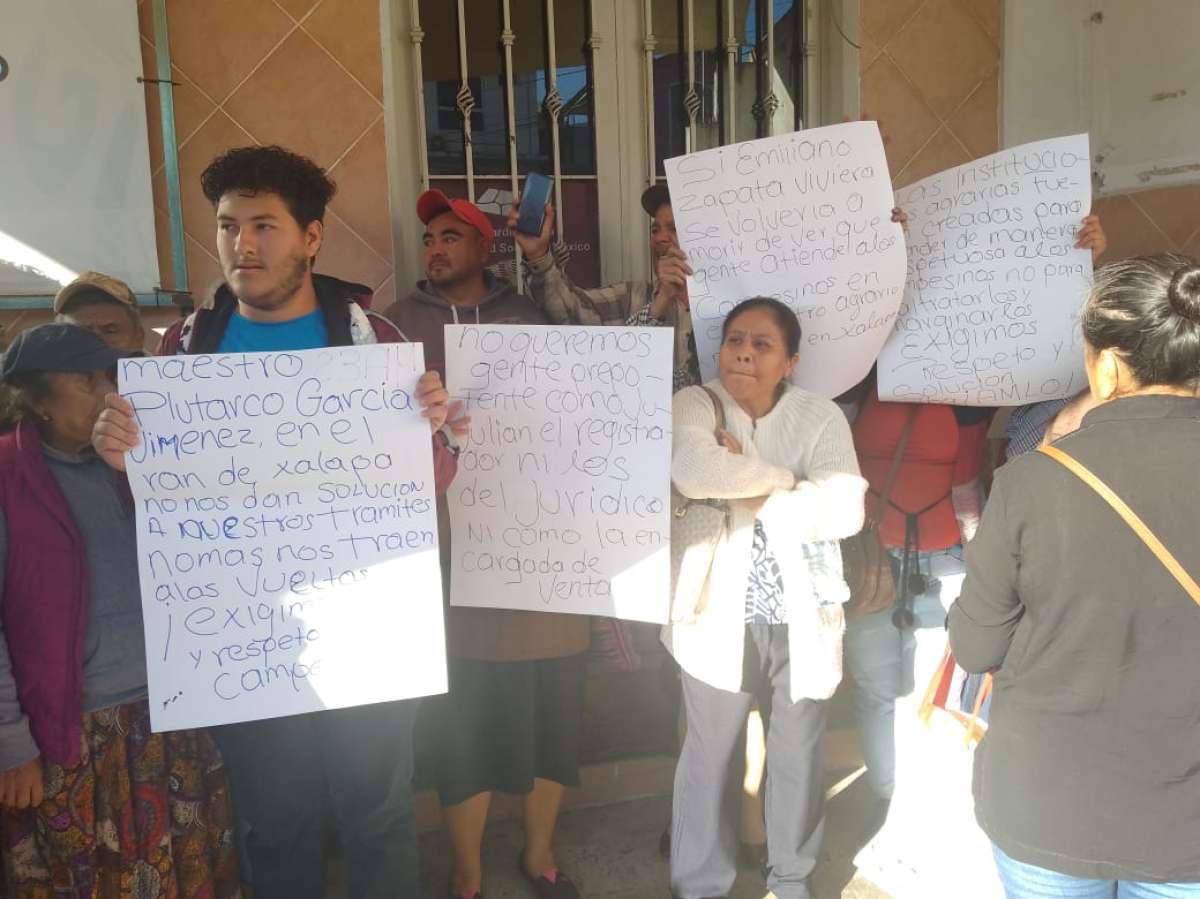 maestro
Plutarco Garcia
Jimenez, en el
ran de xalapa
no nos dan SOLUCION
A NUESTROS TRAMITES
nomas nos traen
alas vueltas
¡exigim
y respeto
campe
no queremos
gente prepo-
tente como Ju
Julian el registra-
dor ni los
del Juridico
Ni como la en-
cargada de
Venta
Si Emiliano
Zapata viviera
se volveria a
morir de ver que
gente atiende alos
Campesinos en
agrario
en xalapa
Las Institucio-
agrarias fue-
creadas para
de manera
alos
no para
tratarlos y
marginarlos
exigimos
respeto y
Solucion AMLO!
México